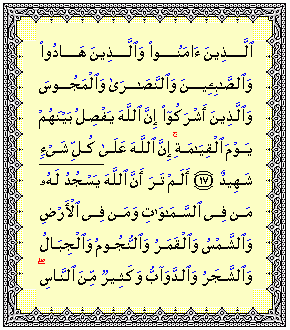 ٱلَّذِينَ ءَامَنُوا۟ وَٱلَّذِينَ هَادُوا۟
وَٱلصَّٰبِـِٔينَ وَٱلنَّصَٰرَىٰ وَٱلْمَجُوسَ
وَٱلَّذِينَ أَشْرَكُوٓا۟ إِنَّ ٱللَّهَ يَفْصِلُ بَيْنَهُمْ
يَوْمَ ٱلْقِيَٰمَةِ ۚ إِنَّ ٱللَّهَ عَلَىٰ كُلِّ شَىْءٍ
شَهِيدٌ ١٧ أَلَمْ تَرَ أَنَّ ٱللَّهَ يَسْجُدُ لَهُۥ
مَن فِى ٱلسَّمَٰوَٰتِ وَمَن فِى ٱلْأَرْضِ
وَٱلشَّمْسُ وَٱلْقَمَرُ وَٱلنُّجُومُ وَٱلْجِبَالُ
وَٱلشَّجَرُ وَٱلدَّوَآبُّ وَكَثِيرٌ مِّنَ ٱلنَّاسِ ۖ